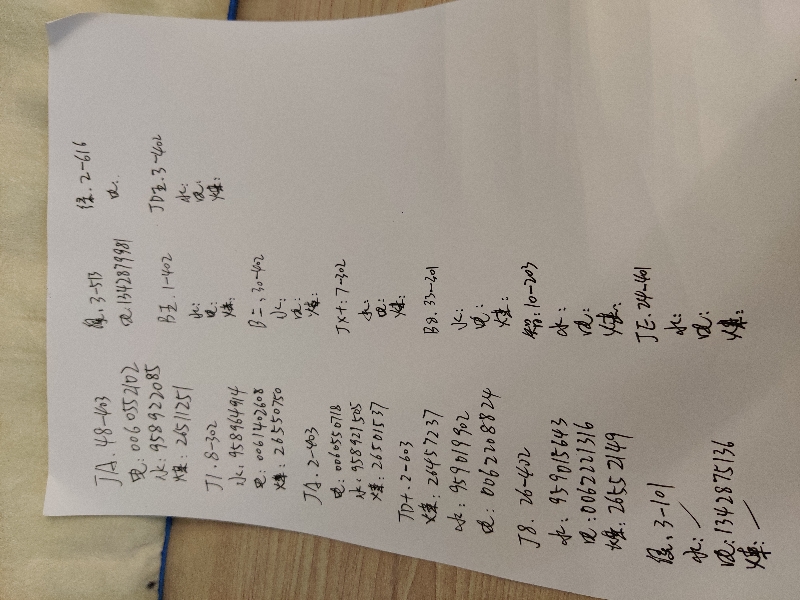 JA.48-403
电:0060552102
水:958922085
煤:26511251
J1.8-302
水:958964914
电:0061402608
煤:26550750
JA.2-403
电:0060550718
水:958921505
煤:26501537
JD十.2-603
煤:24457237
水:959019902
电:0062208824
J8.26-402
水:959015643
电:0062221316
煤:26552149
3-101
水:
电:1342875136
煤:
3-513
电1342879981
B五.1-402
水:
电:
煤:
B二.30-402
水:
电:
煤:
JX十:7-302
水:
电:
煤:
B8.33-401
水:
电:
煤:
10-203
水:
电:
煤:
JE.24-401
水:
电:
煤:
2-616
电:
JD五.3-402
水:
电:
煤: